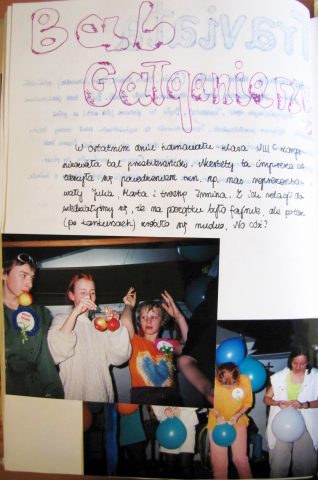 Bal
W ostatnim dniu karnawału klasa VIII C zorga-
nizowała bal przebierańców. Niestety ta impreza
się powodzeniem tzn. np. nas reprezento-
wały Julia Marta i troszkę Z ich relacji do-
wiedziałyśmy się, że na początku było fajnie, ale potem
(po konkursach) zrobiło się nudno, No cóż?